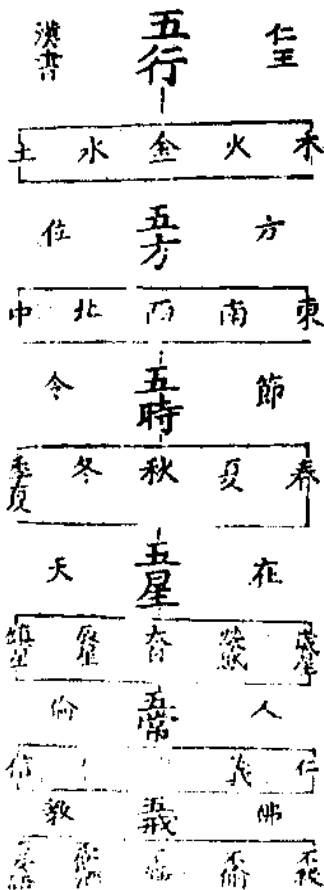 仁王 五行 漢書
木 火 金 水 土
方 五方 位
東 南 西 北 中
節 五時 令
春 夏 秋 冬 季夏
在 五星 天
歲星 熒惑 太白 辰星 鎮星
人 五常 倫
仁 義 信
佛 五戒 教
不殺 不偷